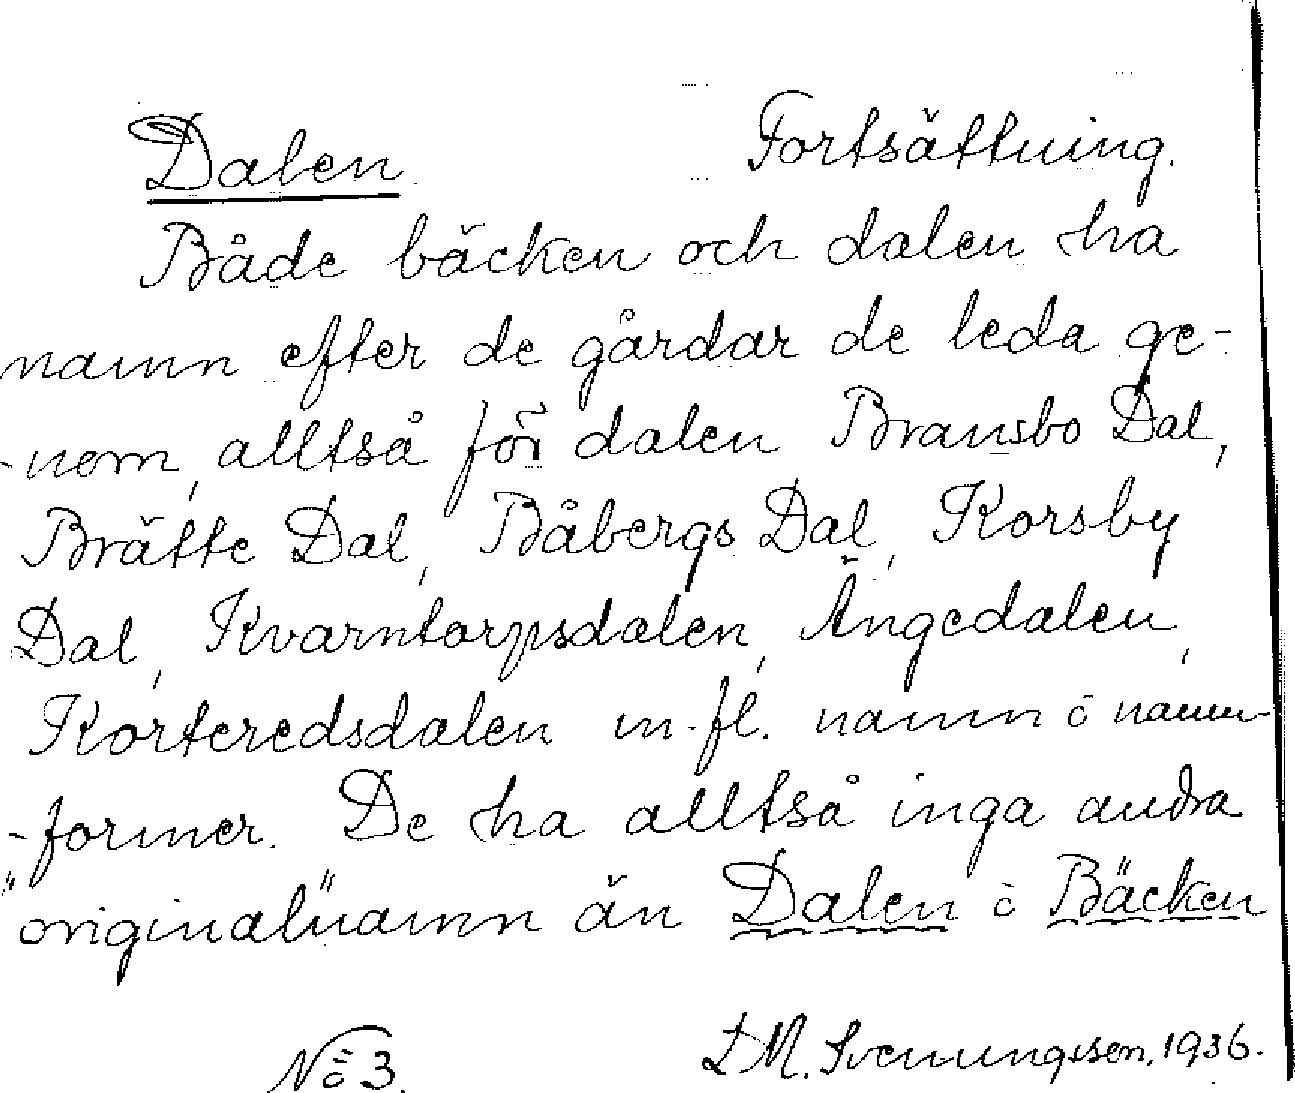 Dalen Fortsättning.
Både bäcken och dalen ha
namn efter de gårdar de leda ge-
-nom, alltså för dalen Bransbo Dal,
Brätte Dal, Båbergs Dal, Korsby
Dal, Kvarntorpsdalen, Ängedalen,
Korteredsdalen m.fl. namn o namn-
-former. De ha alltså inga andra
"original"namn än Dalen o Bäcken
No 3. D M. Svenungsson. 1936.